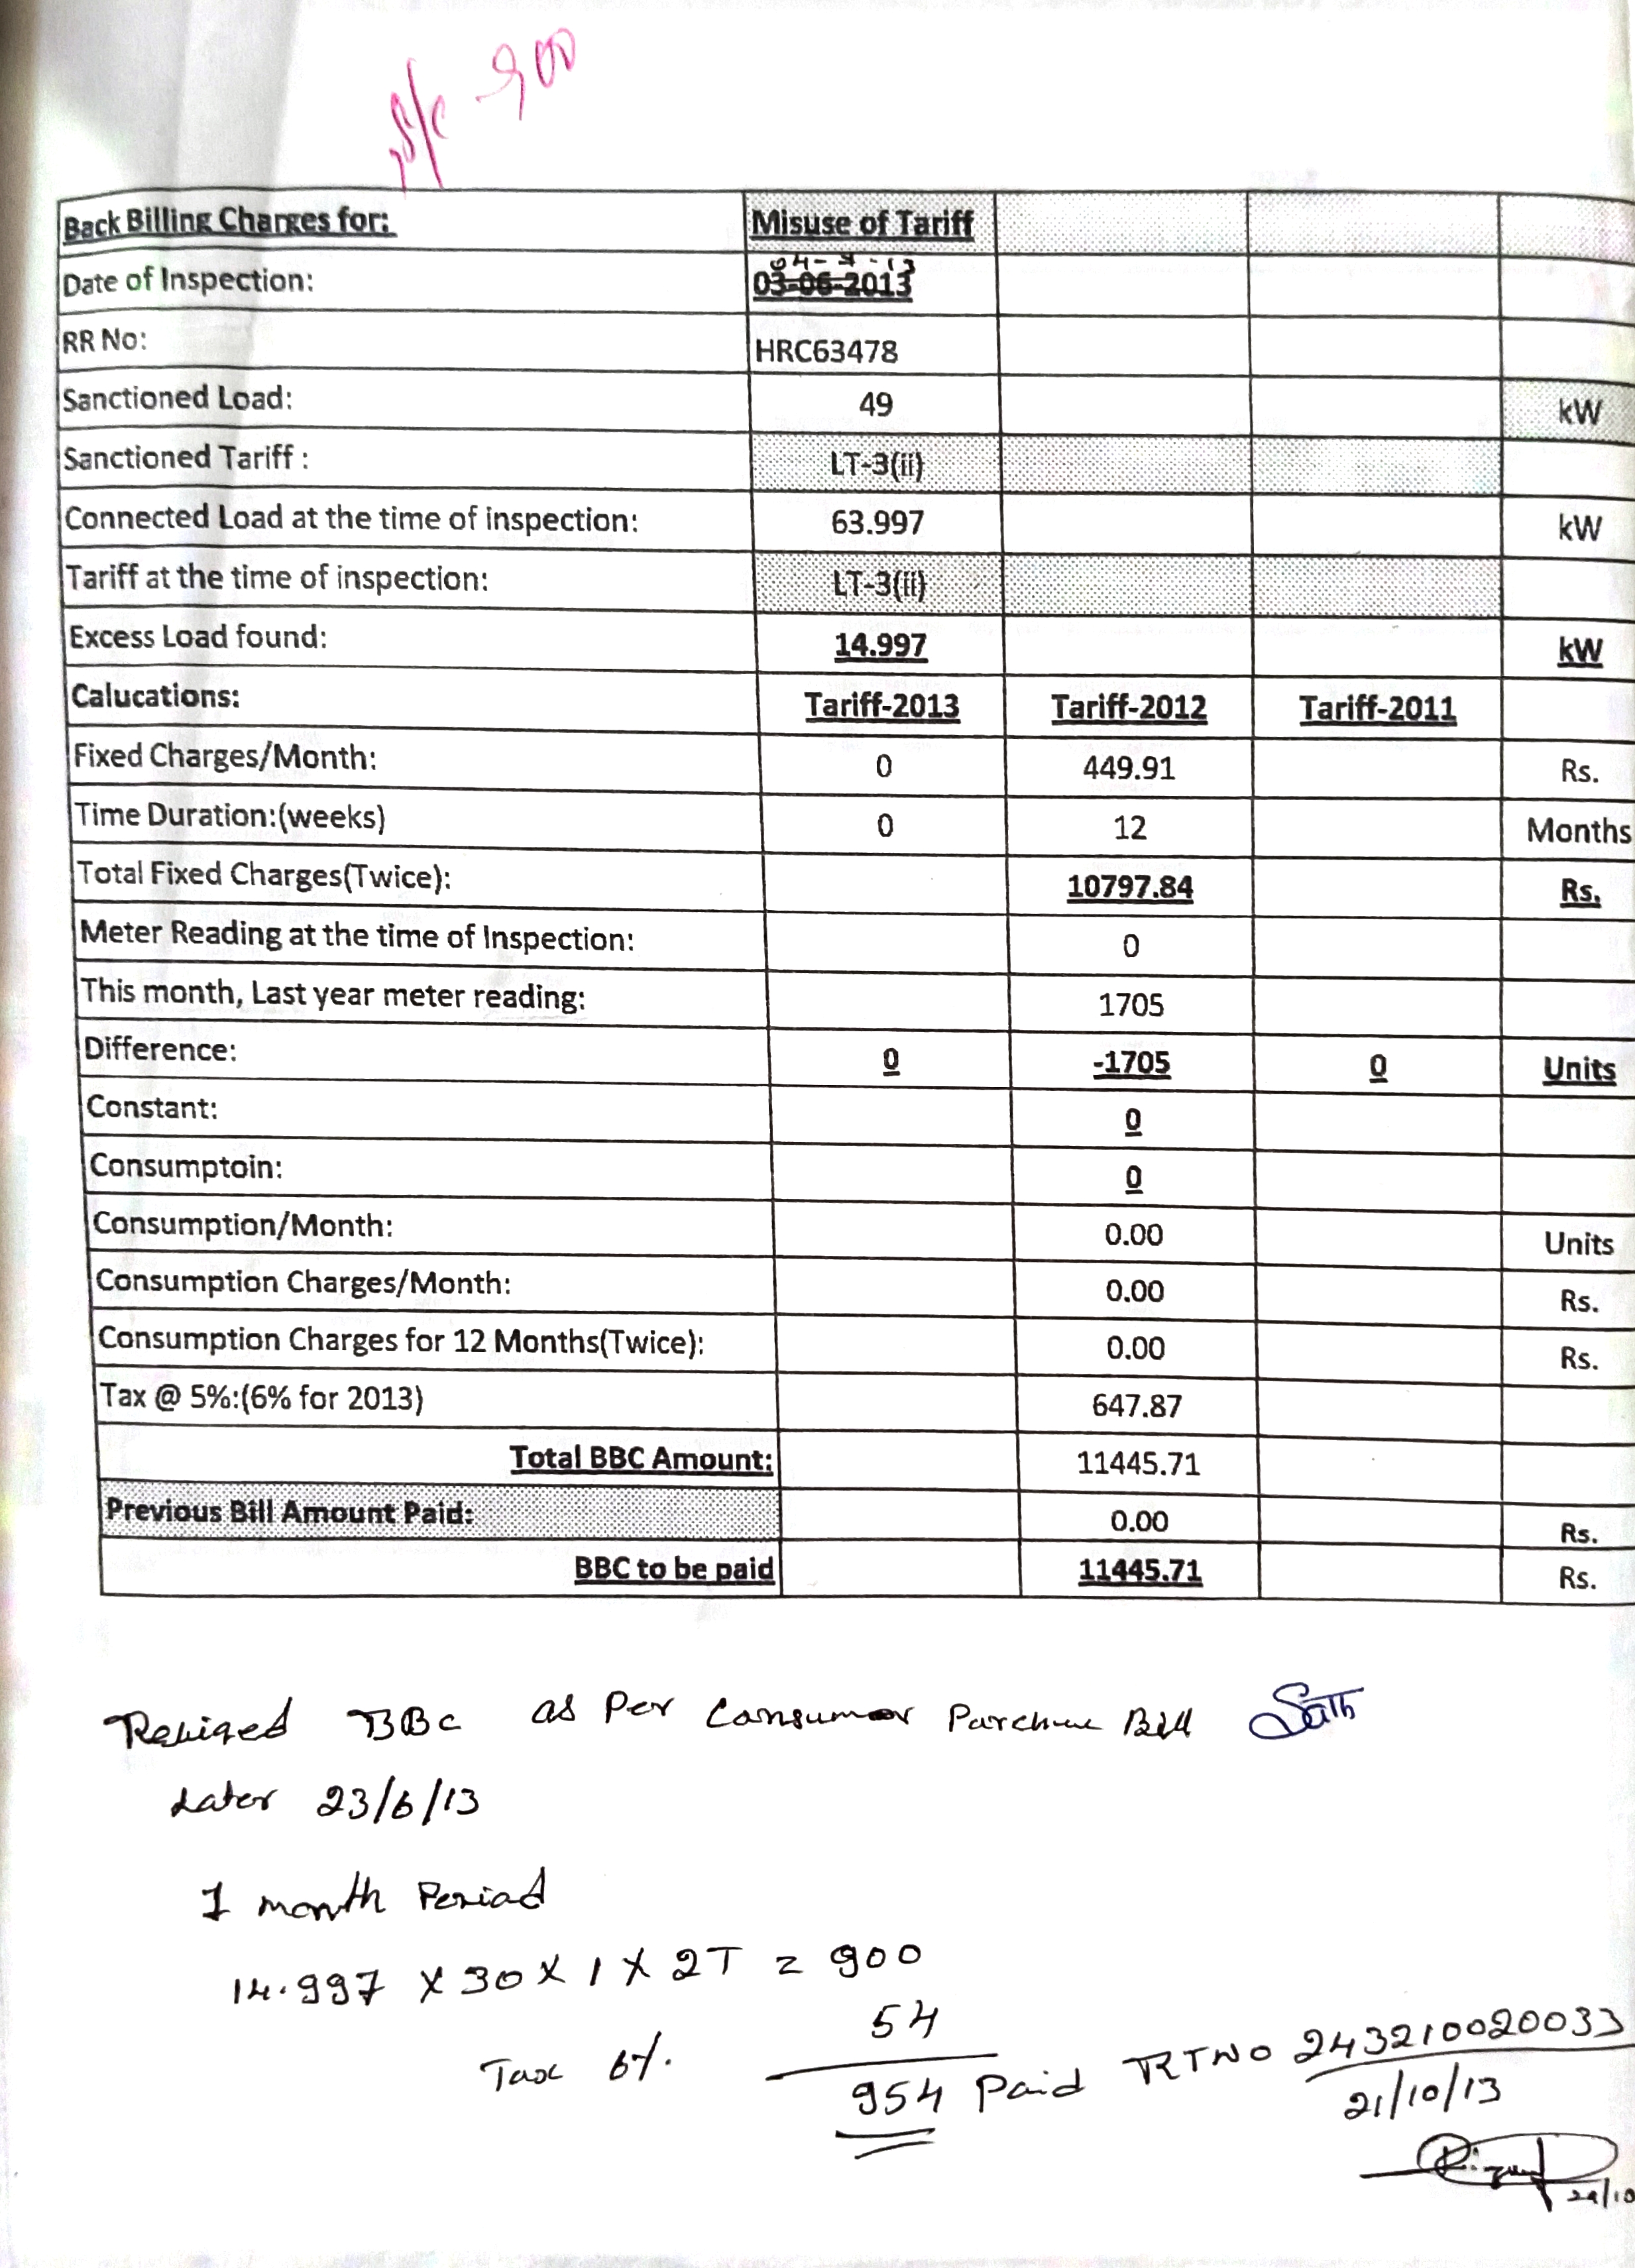 S/c - 900
Back Billing Charges for: Misuse of Tariff
04-7-13
Date of Inspection: 03-06-2013
RR No: HRC63478
Sanctioned Load: 49 kW
Sanctioned Tariff : LT-3(ii)
Connected Load at the time of inspection: 63.997 kW
Tariff at the time of inspection: LT-3(ii)
Excess Load found: 14.997 kW
Calucations: Tariff-2013 Tariff-2012 Tariff-2011
Fixed Charges/Month: 0 449.91 Rs.
Time Duration:(weeks) 0 12 Months
Total Fixed Charges(Twice): 10797.84 Rs.
Meter Reading at the time of Inspection: 0
This month, Last year meter reading: 1705
Difference: 0 -1705 0 Units
Constant: 0
Consumptoin: 0
Consumption/Month: 0.00 Units
Consumption Charges/Month: 0.00 Rs.
Consumption Charges for 12 Months(Twice): 0.00 Rs.
Tax @ 5%:(6% for 2013) 647.87
Total BBC Amount: 11445.71
Previous Bill Amount Paid: 0.00 Rs.
BBC to be paid 11445.71 Rs.
Reviged BBc as Per Consumer Parchase Bill
dater 23/6/13
1 month Period
14.997 X 30 X 1 X 2T = 900
Tax 6%. 54
954 Paid RTNO 243210020033
21/10/13